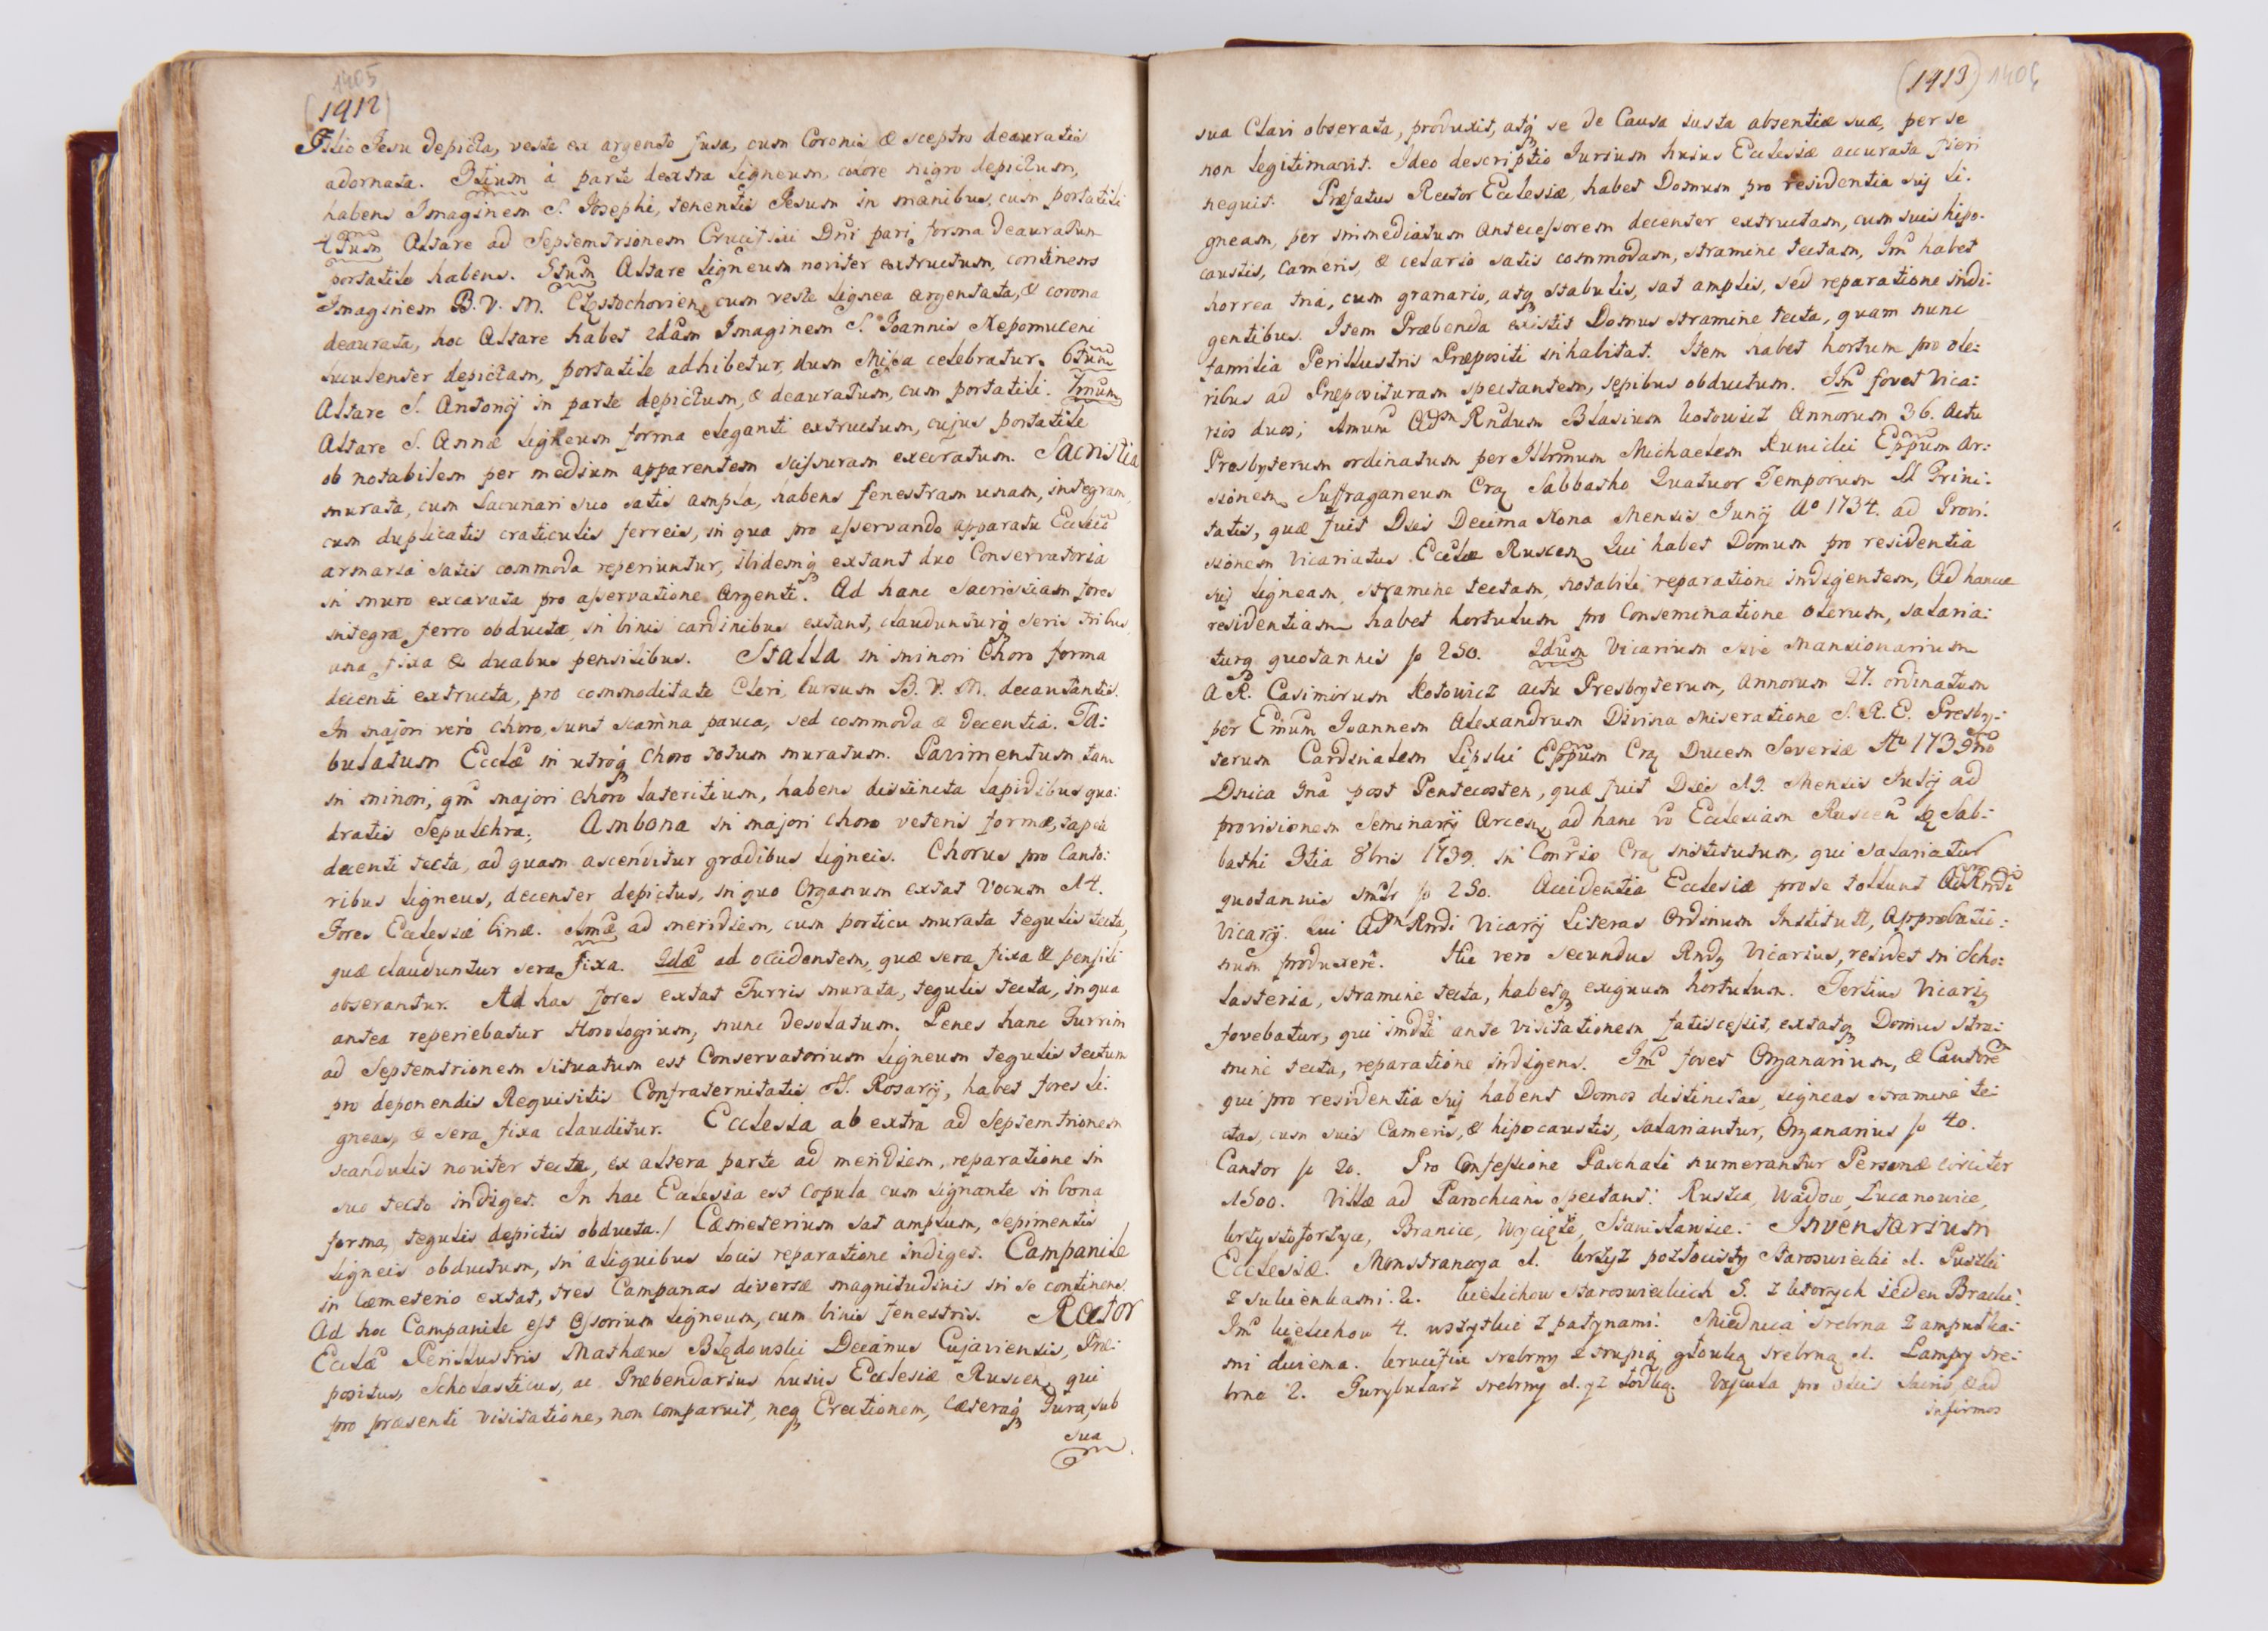 1405
(1412)
Filio Jesu depicta, veste ex argento fusa, cum Coronis & sceptro deauratis
adornata. 3tium à parte dextra ligneum, colore nigro depictum,
habens Imaginem S. Josephi, tenentis Jesum in manibus, cum portatili
4tum Altare ad Septemtrionem Crucifixi Dni pari forma deauratum
portatile habens. 5tum Altare ligneum noviter extructum, continens
Imaginem B. V. M. Częstochovien, cum veste lignea argentata, & corona
deaurata, hoc Altare habet 2dam Imaginem S. Joannis Nepomuceni
luculenter depictam, portatile adhibetur, dum Missa celebratur. 6tum
Altare S. Antonij in parte depictum, & deauratum, cum portatili. 7mum
Altare S. Annæ ligneum forma eleganti extructum, cujus portatile
ob notabilem per medium apparentem scissuram execratum. Sacristia
murata, cum Lacunari suo satis ampla, habens fenestram unam, integram,
cum duplicatis craticulis ferreis, in qua pro asservando apparatu Ecclæ
armaria satis commoda reperiuntur, ibidemq extant duo Conservatoria
in muro excavata pro asservatione Argenti. Ad hanc Sacristiam fores
integræ, ferro obductæ, in binis cardinibus extant, claudunturq seris tribus,
una fixa & duabus pensilibus. Stalla in minori Choro forma
decenti extructa, pro commoditate Cleri, Cursum B. V. M. decantantis.
In majori verò Choro, sunt scamna pauca, sed commoda & decentia. Ta:
bulatum Ecclæ in utroq Choro totum muratum. Pavimentum tam
in minori, qm majori Choro lateritium, habens distincta lapidibus qua:
dratis Sepulchra. Ambona in majori Choro veteris formæ, tapeta
decenti tecta, ad quam ascenditur gradibus ligneis. Chorus pro Canto:
ribus ligneus, decenter depictus, in quo Organum extat Vocum 14.
Fores Ecclesiæ binæ. 1mæ ad meridiem, cum porticu murata tegulis tecta,
quæ clauduntur sera fixa. 2dæ ad occidentem, quæ sera fixa & pensili
obserantur. Ad has fores extat Turris murata, tegulis tecta, in qua
antea reperiebatur Horologium, nunc desolatum. Penes hanc Turrim
ad Septemtrionem situatum est Conservatorium ligneum tegulis tectum
pro deponendis Requisitis Confraternitatis SS. Rosarij, habet fores li:
gneas, & sera fixa clauditur. Ecclesia ab extra ad Septemtrionem
scandulis noviter tecta, ex altera parte ad meridiem, reparatione in
suo tecto indiget. In hac Ecclesia est Copula cum signante in bona
forma, tegulis depictis obducta./ Cæmeterium sat amplum, sepimentis
ligneis obductum, in aliquibus locis reparatione indiget. Campanile
in Cæmeterio extat, tres Campanas diversæ magnitudinis in se continens.
Ad hoc Campanile est Ossorium ligneum, cum binis fenestris. Rector
Ecclæ Perillustris Mathæus Błędowski Decanus Cujaviensis, Præ:
positus, Scholasticus, ac Præbendarius hujus Ecclesiæ Ruscen, qui
pro præsenti visitatione, non comparuit, neq Erectionem, Cæteraq Jura, sub
sua
(1413) 1406
sua Clavi obserata, produxit, atq se de Causa justa absentiæ suæ, per se
non legitimavit. Ideo descriptio Jurium hujus Ecclesiæ accurata fieri
nequit. Præfatus Rector Ecclesiæ, habet Domum pro residentia suj li:
gneam, per immediatum Antecessorem decenter extructam, cum suis hipo:
caustis, Cameris, & celario satis commodam, stramine tectam, Imo habet
horrea tria, cum granario, atq stabulis, sat amplis, sed reparatione indi:
gentibus. Item Præbenda existit Domus stramine tecta, quam nunc
familia Perillustris Præpositi inhabitat. Item habet hortum pro ole:
ribus ad Præposituram spectantem, sepibus obductum. Imo fovet Vica:
rios duos; 1mum Adm Rndum Blasium Kotowicz Annorum 36. Actu
Presbyterum ordinatum per Illrmum Michaelem Kunicki Eppum Ar:
sionem Suffraganeum Crac Sabbatho Quatuor Temporum SS Trini:
tatis, quæ fuit Dies Decima Nona Mensis Junij Ao 1734. ad Provi:
sionem Vicariatus Ecclæ Ruscen, Qui habet Domum pro residentia
suj ligneam, stramine tectam, notabili reparatione indigentem, Ad hanc
residentiam habet hortulum pro Conseminatione olerum, salaria:
turq quotannis fl 250. 2dum Vicarium sive Mansionarium
A R. Casimirum Kotowicz actu Presbyterum, annorum 27. ordinatum
per Emum Joannem Alexandrum Divina Miseratione S. R. E. Presby:
terum Cardinalem Lipski Eppum Crac Ducem Severiæ Ao 1739no
Dnica 9na post Pentecosten, quæ fuit Dies 19. Mensis Julij ad
provisionem Seminarij Arcen, ad hanc vo Ecclesiam Ruscen Sab:
bathi 3tia 8bris 1739. in Consrio Crac institutum, qui salariatur
quotannis fl 250. Accidentia Ecclesiæ pro se tollunt AdRndi
Vicarij. Qui Adm Rndi Vicarij Literas Ordinum Institutt, Approbatio:
num produxere. Hic vero secundus Rndus Vicarius, residet in Scho:
lasteria, stramine tecta, habetq exiguum hortulum. Tertius Vicarius
fovebatur, qui imdte ante Visitationem fatiscessit, extatq Domus stra:
mine tecta, reparatione indigens. Imo fovet Organarium, & Cantorem
qui pro residentia suj habent Domos distinctas, ligneas stramine te:
ctas, cum suis Cameris, & hipocaustis, salariantur, Organarius fl 40.
Cantor fl 20. Pro Confessione Paschali numerantur Personæ circiter
1500. Villæ ad Parochiam spectant: Ruszca, Wadow, Lucanowice,
Krzysztoforzyce, Branice, Wyciąże, Stanisławice. Inventarium
Ecclesiæ. Monstrancya 1. krzyż pozłocisty staroswiecki 1. Puszki
z sukienkami. 2. kielichow staroswieckich 5. z ktorych ieden Bracki.
Imo kielichow 4. wszytkie z patynami. Miednica srebrna z ampułka:
mi dwiema. krucifix srebrny z trupią głowką srebrną 1. Lampy sre:
brne 2. Turybularz srebrny 1. yz łodką. Vascula pro Oleis Sacris, & ad
infirmos